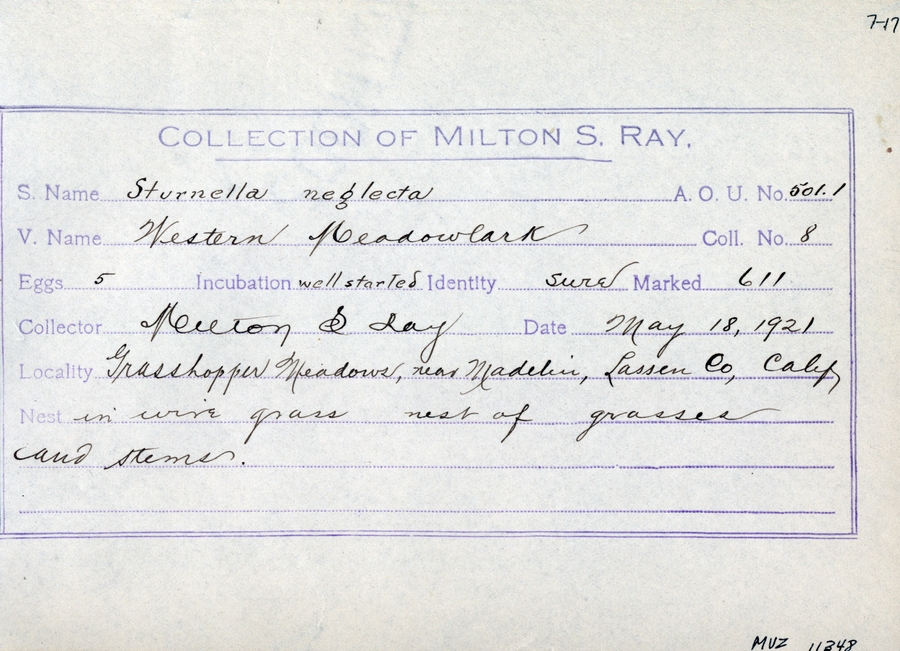 7-17
COLLECTION OF MILTON S. RAY.
S. Name Sturnella neglecta A. O. U. No. 501.1
V. Name Western Meadowlark Coll. No. 8
Eggs 5 Incubation well started Identity sure Marked 611
Collector Milton S Ray Date May 18, 1921
Locality Grasshopper Meadows, near Madelin, Lassen Co, Calif
Nest in wire grass nest of grasses
and stems.
MVZ 11348